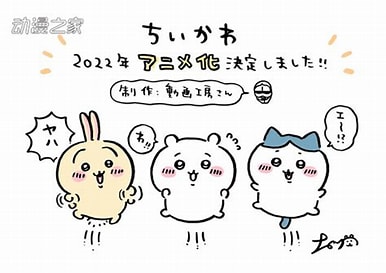 动漫之家
ちいかわ
2022年 アニメ化 決定しました!!
制作:動画工房さん
ヤハ
わ!!
エー!?